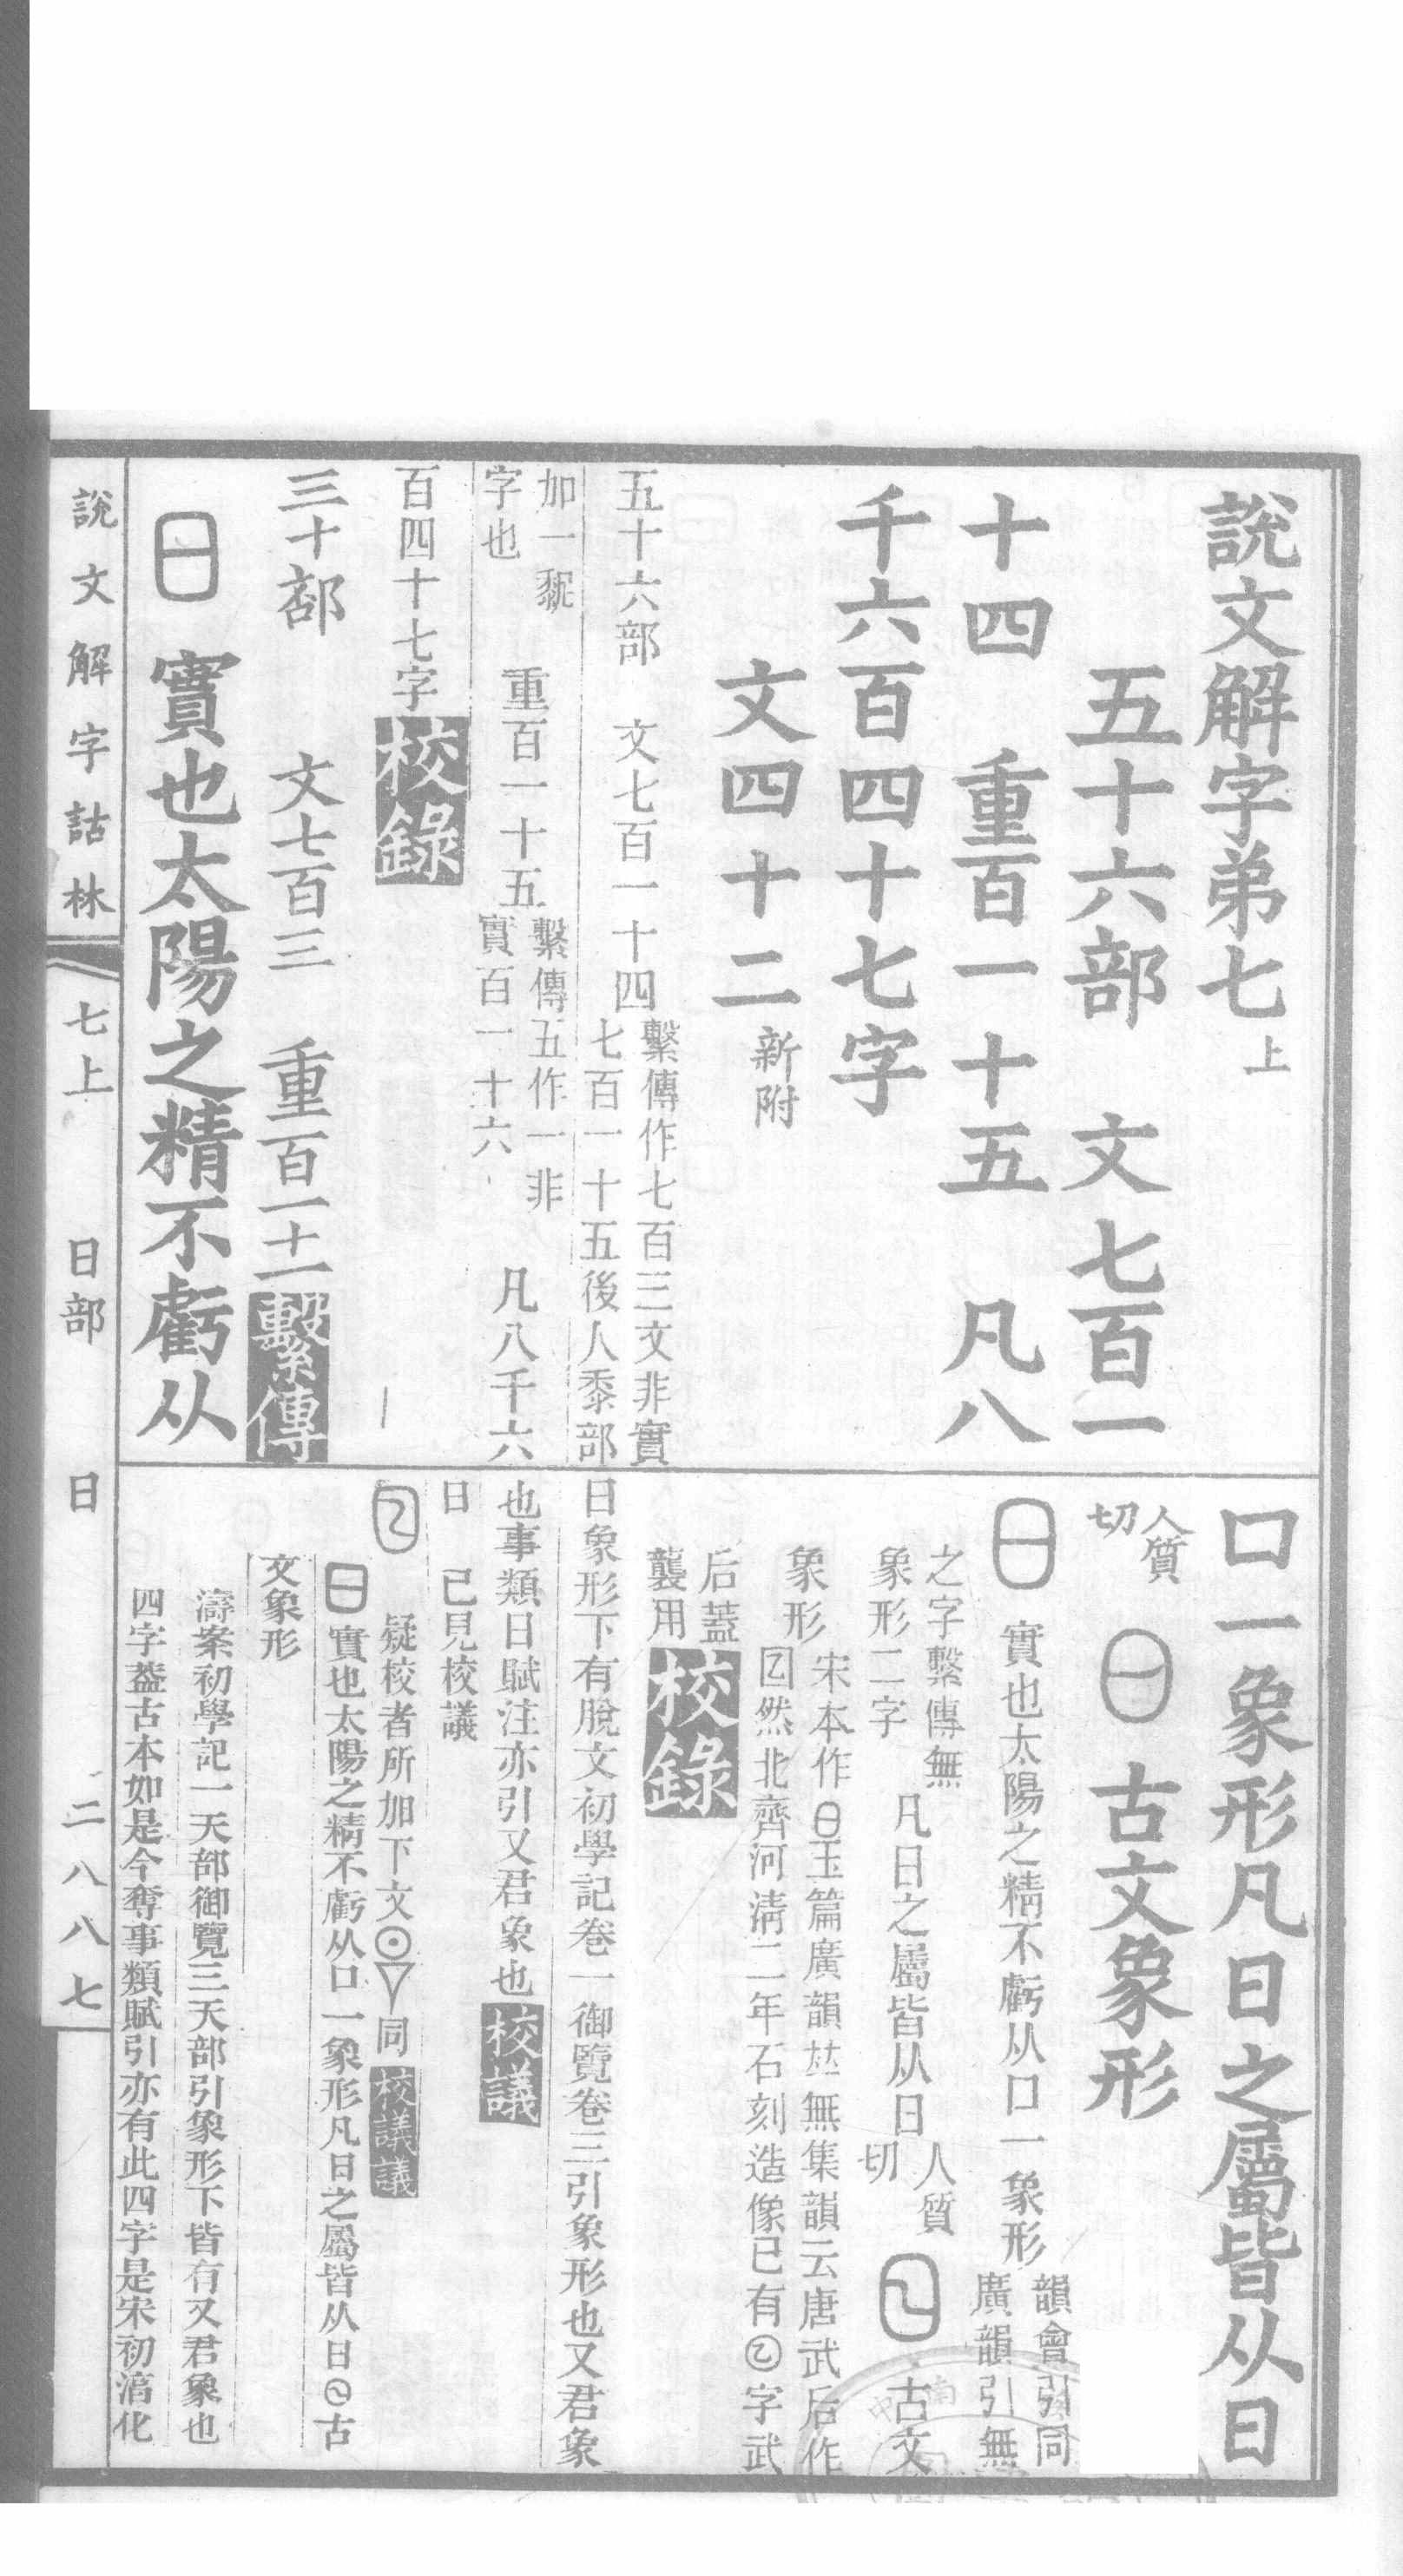 說文解字弟七上
五十六部　文七百一
十四　重百一十五　凡八
千六百四十七字
文四十二新附
五十六部　文七百一十四繫傳作七百三文非實
七百一十五後人黍部
加一䵑
字也　重百一十五繫傳五作一非
實百一十六　凡八千六
百四十七字校錄
三十部　文七百三　重百一十一繫傳
日　實也太陽之精不虧从
口一象形凡日之屬皆从日
人質
切　古文象形
日　實也太陽之精不虧从口一象形韻會引同
廣韻引無
之字繫傳無
象形二字　凡日之屬皆从日人質
切　古文
象形宋本作玉篇廣韻竝無集韻云唐武后作
囸然北齊河清二年石刻造像已有字武
后蓋
襲用校錄
日象形下有脫文初學記卷一御覽卷三引象形也又君象
也事類日賦注亦引又君象也校議
日　已見校議
疑校者所加下文同校議議
日實也太陽之精不虧从口一象形凡日之屬皆从日古
文象形
濤案初學記一天部御覽三天部引象形下皆有又君象也
四字蓋古本如是今奪事類賦引亦有此四字是宋初濄化
說文解字詁林　七上　日部　日　二八八七